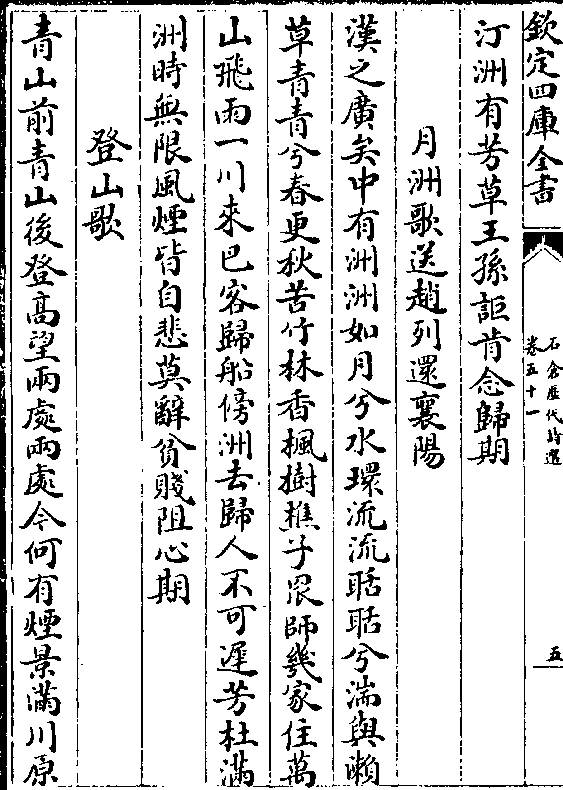 欽定四庫全書
石倉歷代詩選
卷五十一
五
汀洲有芳草王孫詎肯念歸期
月洲歌送趙列還襄陽
漢之廣矣中有洲洲如月兮水環流流聒聒兮湍與瀨
草青青兮春更秋苦竹林香楓樹樵子罛師幾家住萬
山飛雨一川來巴客歸船傍洲去歸人不可遲芳杜滿
洲時無限風煙皆自悲莫辭貧賤阻心期
登山歌
青山前青山後登高望兩處兩處今何有煙景滿川原